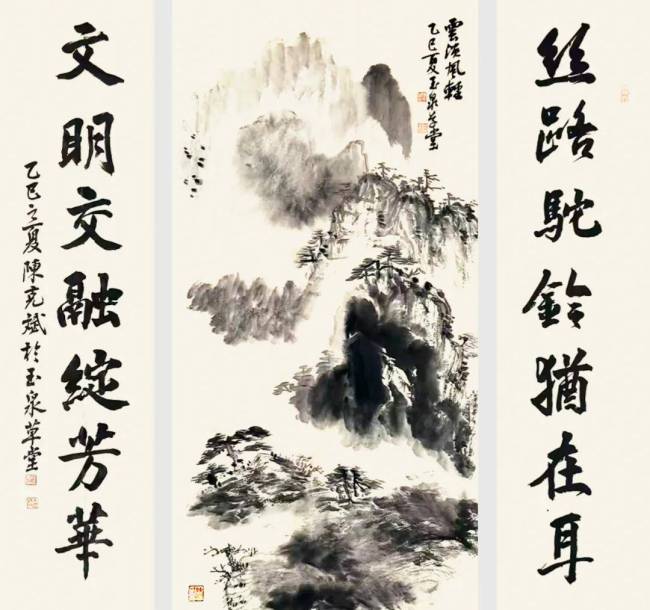 絲路駝鈴猶在耳
雲淡風輕
乙巳夏玉泉草堂
文明交融綻芳華
乙巳立夏陳克斌於玉泉草堂